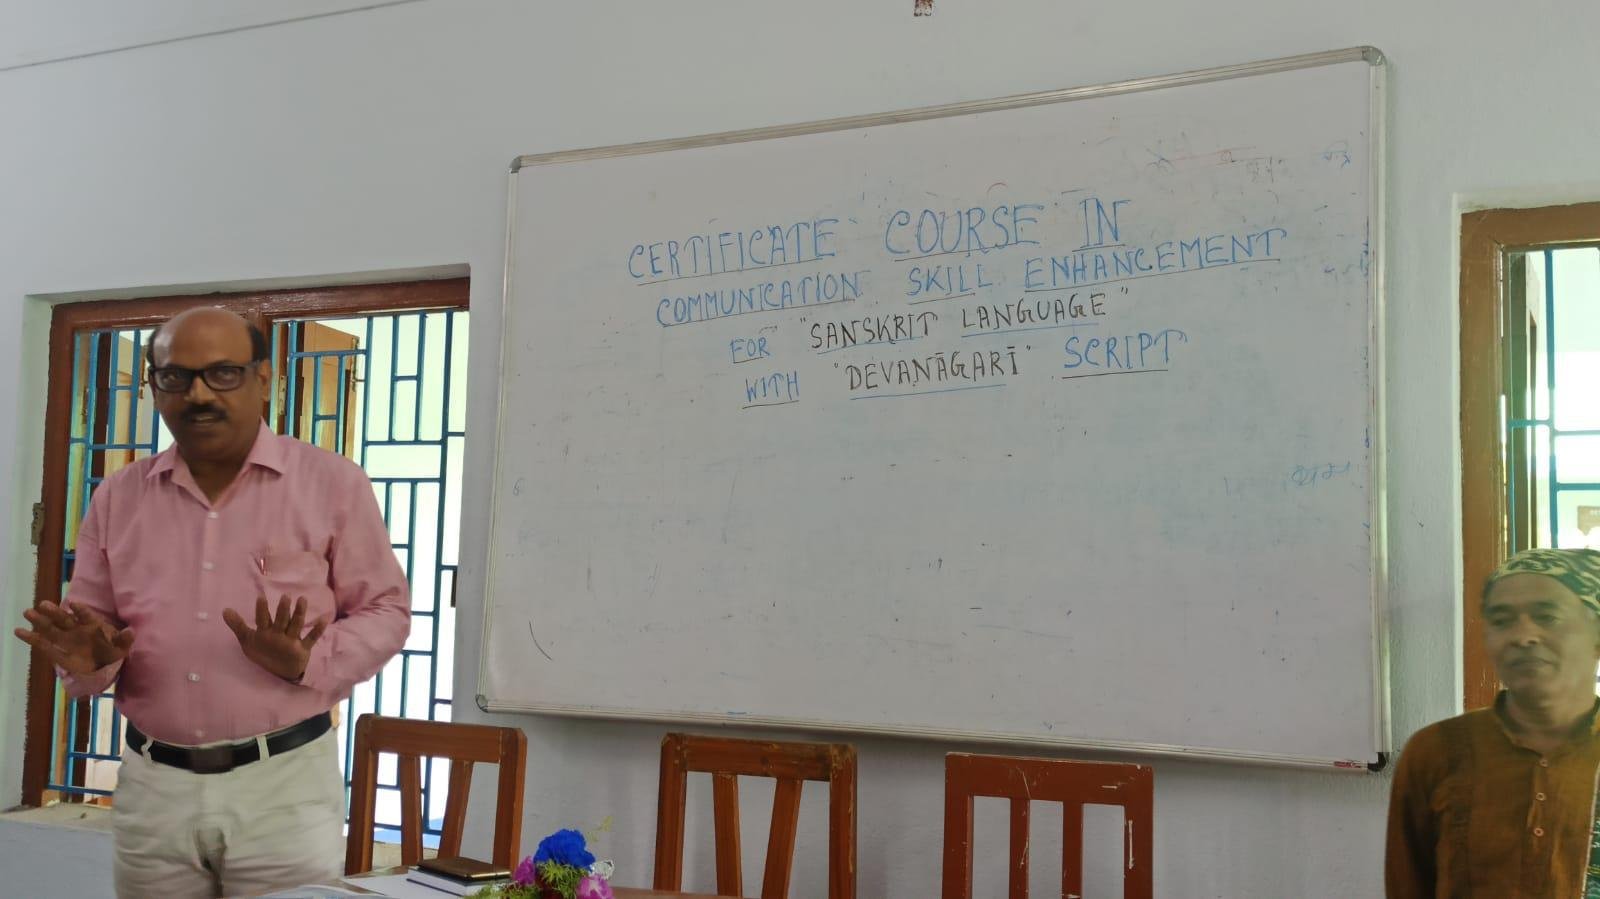 CERTIFICATE COURSE IN
COMMUNICATION SKILL ENHANCEMENT
FOR "SANSKRIT LANGUAGE"
WITH "DEVANĀGARĪ" SCRIPT